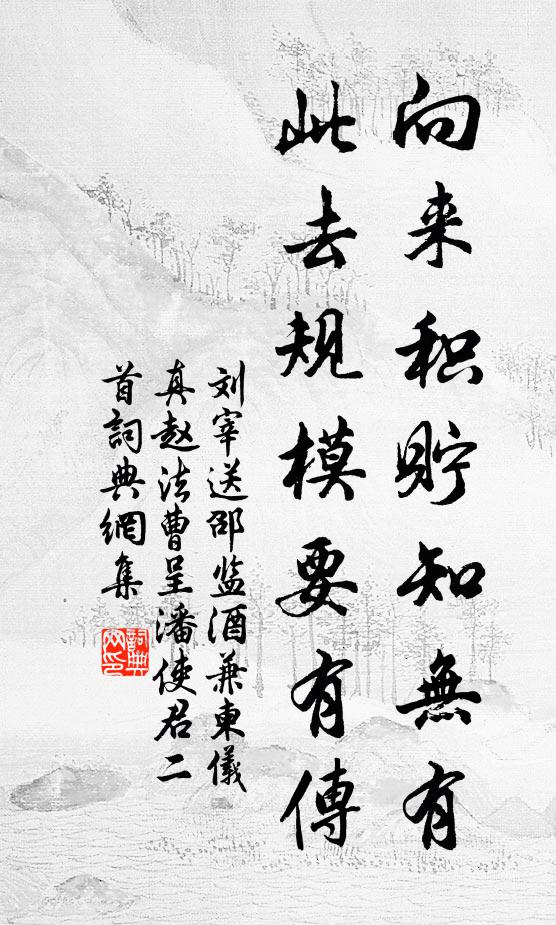 向来积貯知無有
此去规模要有傳
刘宰送邵监酒兼柬儀
真赵法曹呈潘使君二
首詞典網集
詞典
网印